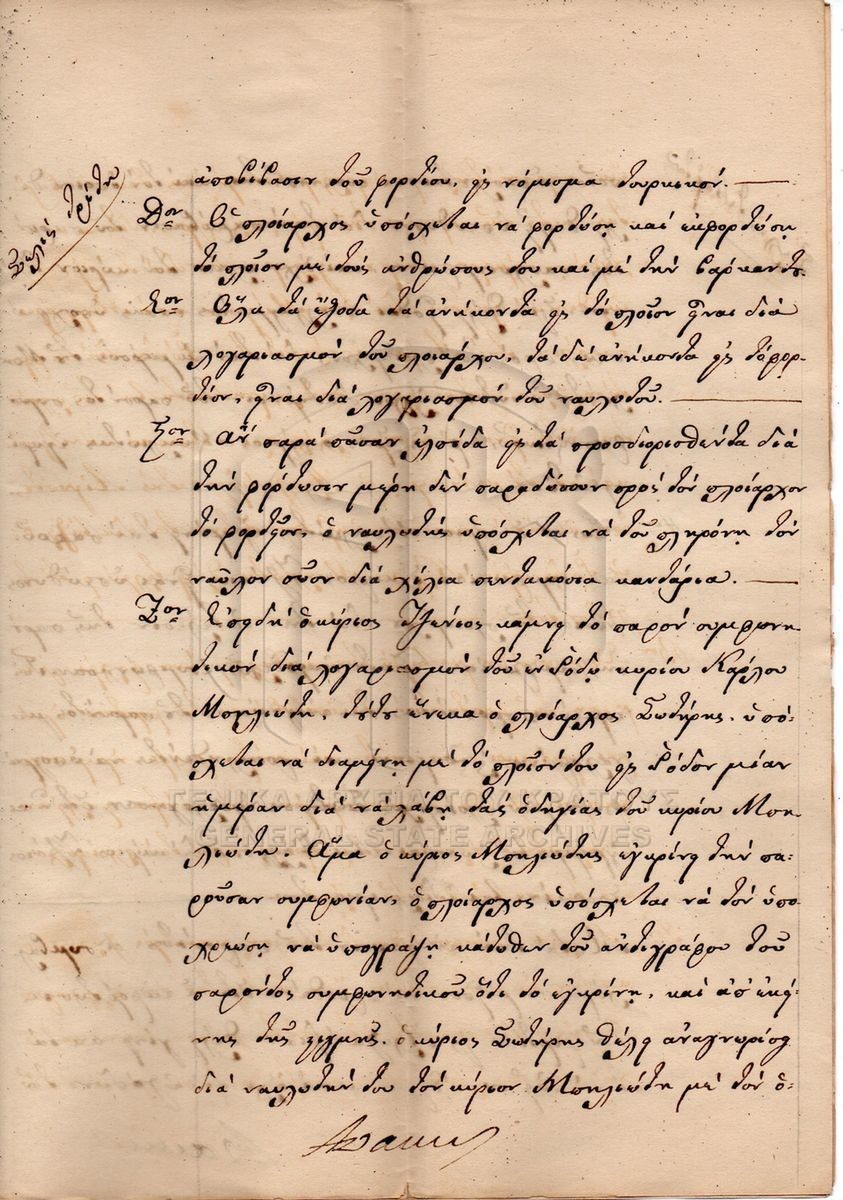 Σελίς τρίτη
ἀποβίβασιν τοῦ φορτίου, εἰς νόμισμα τουρκικόν.
Δον Ὁ πλοίαρχος ὑπόσχεται νὰ φορτώσῃ καὶ ἐκφορτώσῃ
τὸ πλοῖον μὲ τοὺς ἀνθρώπους του καὶ μὲ τὴν βάρκαν του.
Εον Ὅλα τὰ ἔξοδα τὰ ἀνήκοντα εἰς τὸ πλοῖον εἶναι διὰ
λογαριασμὸν τοῦ πλοιάρχου, τὰ δὲ ἀνήκοντα εἰς τὸ φορ-
τίον, εἶναι διὰ λογαριασμὸν τοῦ ναυλωτοῦ.
Ϛον Ἂν παρὰ πᾶσαν ἐλπίδα εἰς τὰ προσδιορισθέντα διὰ
τὴν φόρτωσιν μέρη δὲν παραδώσουν πρὸς τὸν πλοίαρχον
τὸ φορτίον, ὁ ναυλωτὴς ὑπόσχεται νὰ τοῦ πληρώνῃ τὸν
ναῦλον σῶον διὰ χίλια πεντακόσια καντάρια.
Ζον Ἐπειδὴ ὁ κύριος Τζένιος κάμνει τὸ παρὸν συμφωνη
τικὸν διὰ λογαριασμὸν τοῦ ἐν Ρόδῳ κυρίου Καρόλου
Μπηλιώτη, τούτου ἕνεκα ὁ πλοίαρχος Σωτήρης, ὑπό-
σχεται νὰ διαμείνῃ μὲ τὸ πλοῖόν του εἰς Ρόδον μίαν
ἡμέραν διὰ νὰ λάβῃ τὰς ὁδηγίας τοῦ κυρίου Μπη
λιώτη. Ἅμα ὁ κύριος Μπηλιώτης ἐγκρίνει τὴν πα-
ροῦσαν συμφωνίαν, ὁ πλοίαρχος ὑπόσχεται νὰ τὸν ὑπο
χρεώσῃ νὰ ὑπογράψῃ κάτωθεν τοῦ ἀντιγράφου τοῦ
παρόντος συμφωνητικοῦ ὅτι τὸ ἐγκρίνῃ, καὶ ἀπ' ἐκεί-
νης τῆς στιγμῆς, ὁ κύριος Σωτήρης θέλει ἀναγνωρίσει
διὰ ναυλωτήν του τὸν κύριον Μπηλιώτη μὲ τὸν ὁ-
ΓΕΝΙΚΑ ΑΡΧΕΙΑ ΤΟΥ ΚΡΑΤΟΥΣ
GENERAL STATE ARCHIVES